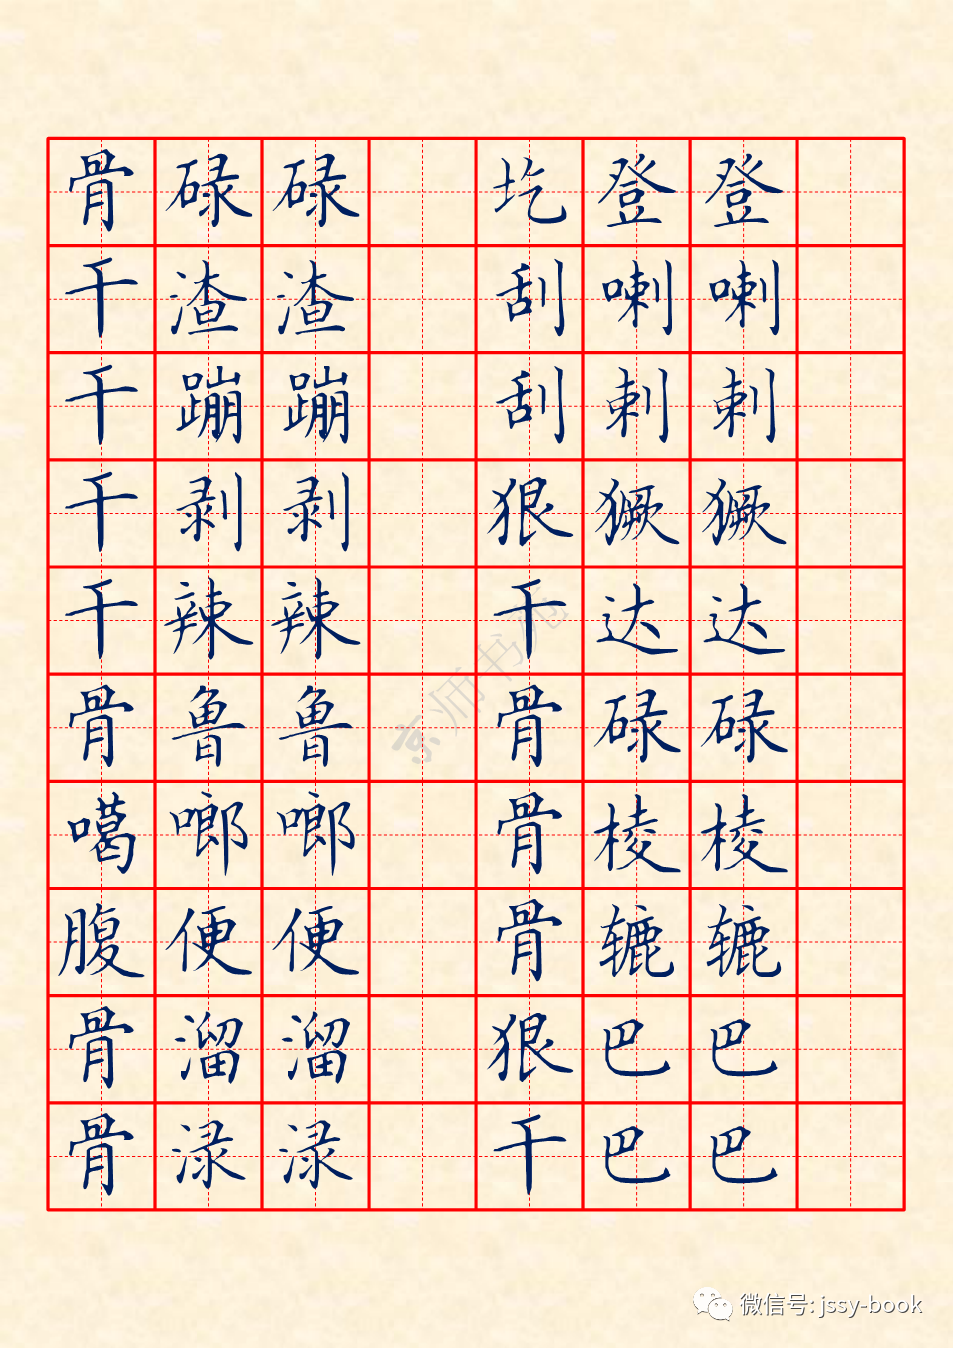 骨碌碌 圪登登
干渣渣 刮喇喇
干蹦蹦 刮剌剌
干剥剥 狠獗獗
干辣辣 干达达
骨鲁鲁 骨碌碌
噶啷啷 骨棱棱
腹便便 骨辘辘
骨溜溜 狠巴巴
骨渌渌 干巴巴
京师书苑
微信号: jssy-book